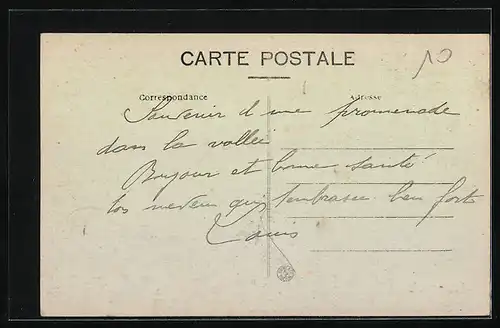 CARTE POSTALE
10
Correspondance
Adresse
Souvenir d'une promenade
dans la vallée
Bonjour et bonne santé
ton neveu qui t'embrasse bien fort
Louis